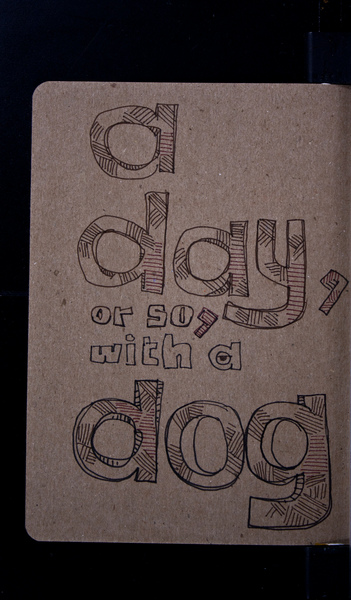 a
day,
or so,
with a
dog